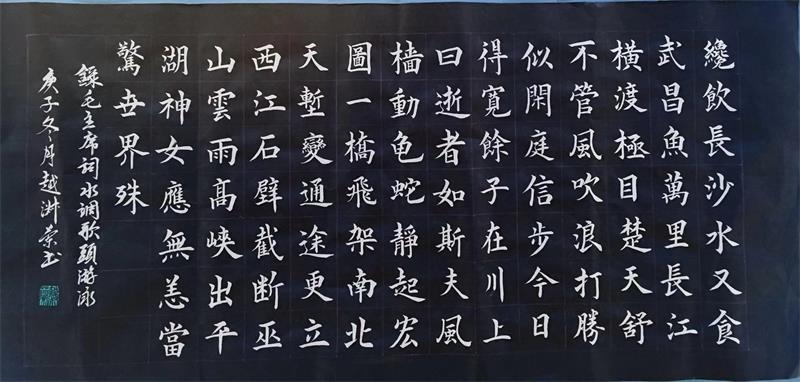 纔飲長沙水又食
武昌魚萬里長江
橫渡極目楚天舒
不管風吹浪打勝
似閑庭信步今日
得寬餘子在川上
曰逝者如斯夫風
檣動龜蛇靜起宏
圖一橋飛架南北
天塹變通途更立
西江石壁截断巫
山雲雨高峽出平
湖神女應無恙當
驚世界殊
錄毛主席詞水調歌頭游泳
庚子冬月越澍荣书